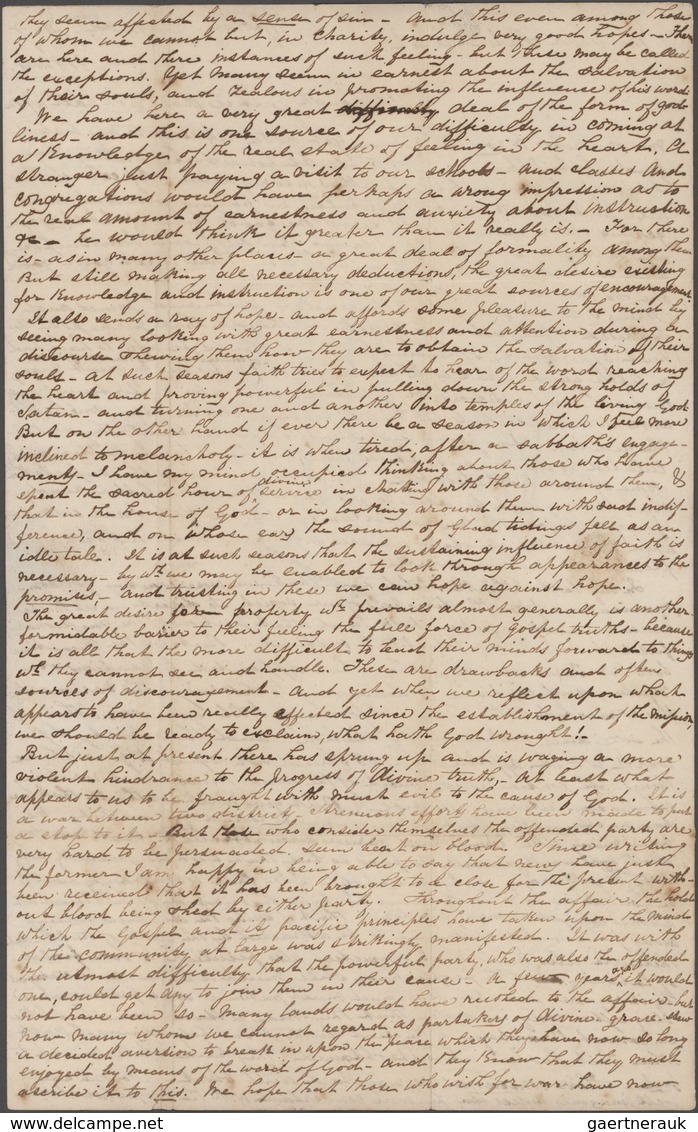 they seem affected by a sense of sin - And this even among those
of whom we cannot but, in charity, indulge very good hopes - There
are here and there instances of such feeling - but these may be called
the exceptions. Yet many seem in earnest about the salvation
of their souls, and zealous in promoting the influence of his word
We have here a very great deal of the form of god
liness - and this is one source of our difficulty in coming at
a Knowledge of the real state of feeling in the heart. A
stranger just paying a visit to our schools - and classes and
congregations would have perhaps a wrong impression as to
the real amount of earnestness and anxiety about instruction
&c - he would think it greater than it really is. - For there
is - as in many other places - a great deal of formality among them
But still making all necessary deductions, the great desire existing
for Knowledge and instruction is one of our great sources of encouragement
It also sends a ray of hope - and affords some pleasure to the mind by
seeing many looking with great earnestness and attention during a
discourse shewing them how they are to obtain the salvation of their
souls - at such seasons faith tries to expect to hear of the word reaching
the heart and proving powerful in pulling down the strong holds of
Satan - and turning one and another into temples of the living God
But on the other hand if ever there be a season in which I feel more
inclined to melancholy - it is when tired, after a sabbath's engage-
ments - I have my mind occupied thinking about those who have
spent the sacred hour of divine service in chatting with those around them, &
that in the house of God - or in looking around them with sad indif-
ference, and on whose ears the sound of Glad tidings fell as an
idle tale. It is at such seasons that the sustaining influence of faith is
necessary - by wh we may be enabled to look through appearances to the
promises, - and trusting in these we can hope against hope.
The great desire for property wh prevails almost generally is another
formidable barier to their feeling the full force of gospel truths - because
it is all that the more difficult to lend their minds forward to things
wh they cannot see and handle. These are drawbacks and often
sources of discouragement - and yet when we reflect upon what
appears to have been really effected since the establishment of the mission,
we should be ready to exclaim, what hath God wrought! -
But just at present there has sprung up and is waging a more
violent hindrance to the progress of divine truth, - at least what
appears to us to be fraught with much evil to the cause of God. It is
a war between two districts. Strenuous efforts have been made to put
a stop to it - But those who consider themselves the offended party are
very hard to be persuaded. Seem bent on blood. Since writing
the former I am happy in being able to say that news have just
been received that it has been brought to a close for the present with-
out blood being shed by either party. Throughout the affair the hold
which the Gospel and its pacific principles have taken upon the mind
of the community at large was strikingly manifested. It was with
the utmost difficulty that the powerful party, who was also the offended
one, could get any to join them in their cause - A few years ago it would
not have been so - many lands would have rushed to the affair - but
now many whom we cannot regard as partakers of divine grace shew
a decided aversion to break in upon the peace which they have now so long
enjoyed by means of the word of God - and they Know that they must
ascribe it to this. We hope that those who wish for war have now
gaertnerauk